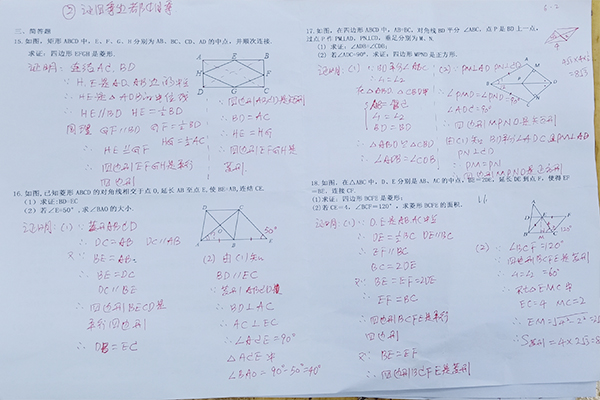 三、简答题
15.如图,矩形 ABCD 中,E、F、G、H 分别为 AB、BC、CD、AD 的中点,并顺次连接.
求证:四边形 EFGH 是菱形.
证明:连结 AC、BD
∵ H、E 是 AD、AB 边的中点
∴ HE 是△ADB 的中位线
∴ HE∥BD HE=½BD
同理 GF∥BD GF=½BD
∴ HE≌GF
∴ 四边形EFGH是平行
四边形
∵ 四边形ABCD是矩形
∴ BD=AC
∴ HE=HG
∴ 四边形EFGH是
菱形.
HG=½AC
16.如图,已知菱形 ABCD 的对角线相交于点 O,延长 AB 至点 E,使 BE=AB,连结 CE.
(1)求证:BD=EC
(2)若∠E=50°,求∠BAO 的大小.
证明:(1)∵ 菱形ABCD
∴ DC=AB DC∥AB
又∵ BE=AB
∴ BE=DC
DC∥BE
∴ 四边形BECD是
平行四边形
∴ DB=EC
(2) 由(1)知
BD∥EC
∵ 菱形ABCD
∴ BD⊥AC
∴ AC⊥EC
∴ ∠ACE=90°
△ACE中
∠BAO=90°-50°=40°
17.如图,在四边形 ABCD 中,AB=BC,对角线 BD 平分∠ABC,点 P 是 BD 上一点,
过点 P 作 PM⊥AD,PN⊥CD,垂足分别为 M、N.
(1)求证:∠ADB=∠CDB;
(2)若∠ADC=90°,求证:四边形 MPND 是正方形.
证明:(1)∵ BD平分∠ABC
∴ ∠1=∠2
在△ADB、△CDB中
∠1=∠2
BD=BD
∴ △ABD≌△CBD
∴ ∠ADB=∠CDB
(2)∵ PM⊥AD PN⊥CD
∴ ∠PMD=∠PND=90°
∠ADC=90°
∴ 四边形MPND是矩形
PN⊥CD
∴ PM=PN
四边形MPND是正方形
18.如图,在△ABC 中,D、E 分别是 AB、AC 的中点,BE=2DE,延长 DE 到点 F,使得 EF
=BE,连接 CF.
(1)求证:四边形 BCFE 是菱形;
(2)若 CE=4,∠BCF=120°,求菱形 BCFE 的面积.
证明:(1)∵ D、E是AB、AC中点
∴ DE=½BC DE∥BC
∴ EF∥BC
BC=2DE
又∵ BE=EF=2DE
∴ EF=BC
∴ 四边形BCFE是平行
四边形
又∵ BE=EF
∴ 四边形BCFE是菱形
(2)∵ ∠BCF=120°
四边形BCFE是菱形
∴ ∠1=∠2=60°
∴ Rt△EMC中
EC=4 MC=2